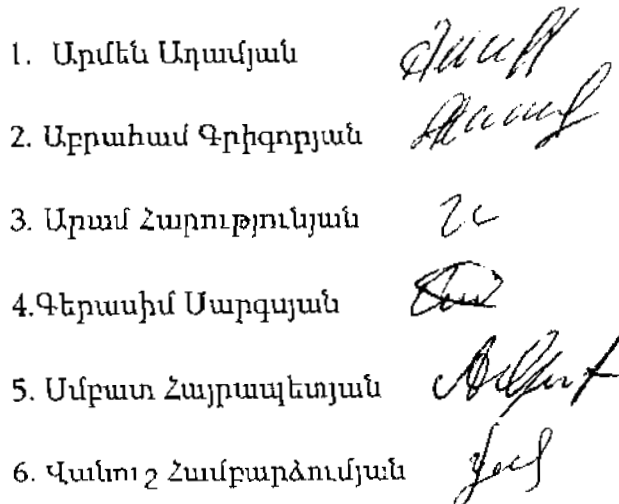 1. Արմեն Ադամյան
2. Աբրահամ Գրիգորյան
3. Արամ Հարությունյան
4.Գերասիմ Սարգսյան
5. Սմբատ Հայրապետյան
6. Վանուշ Համբարձումյան